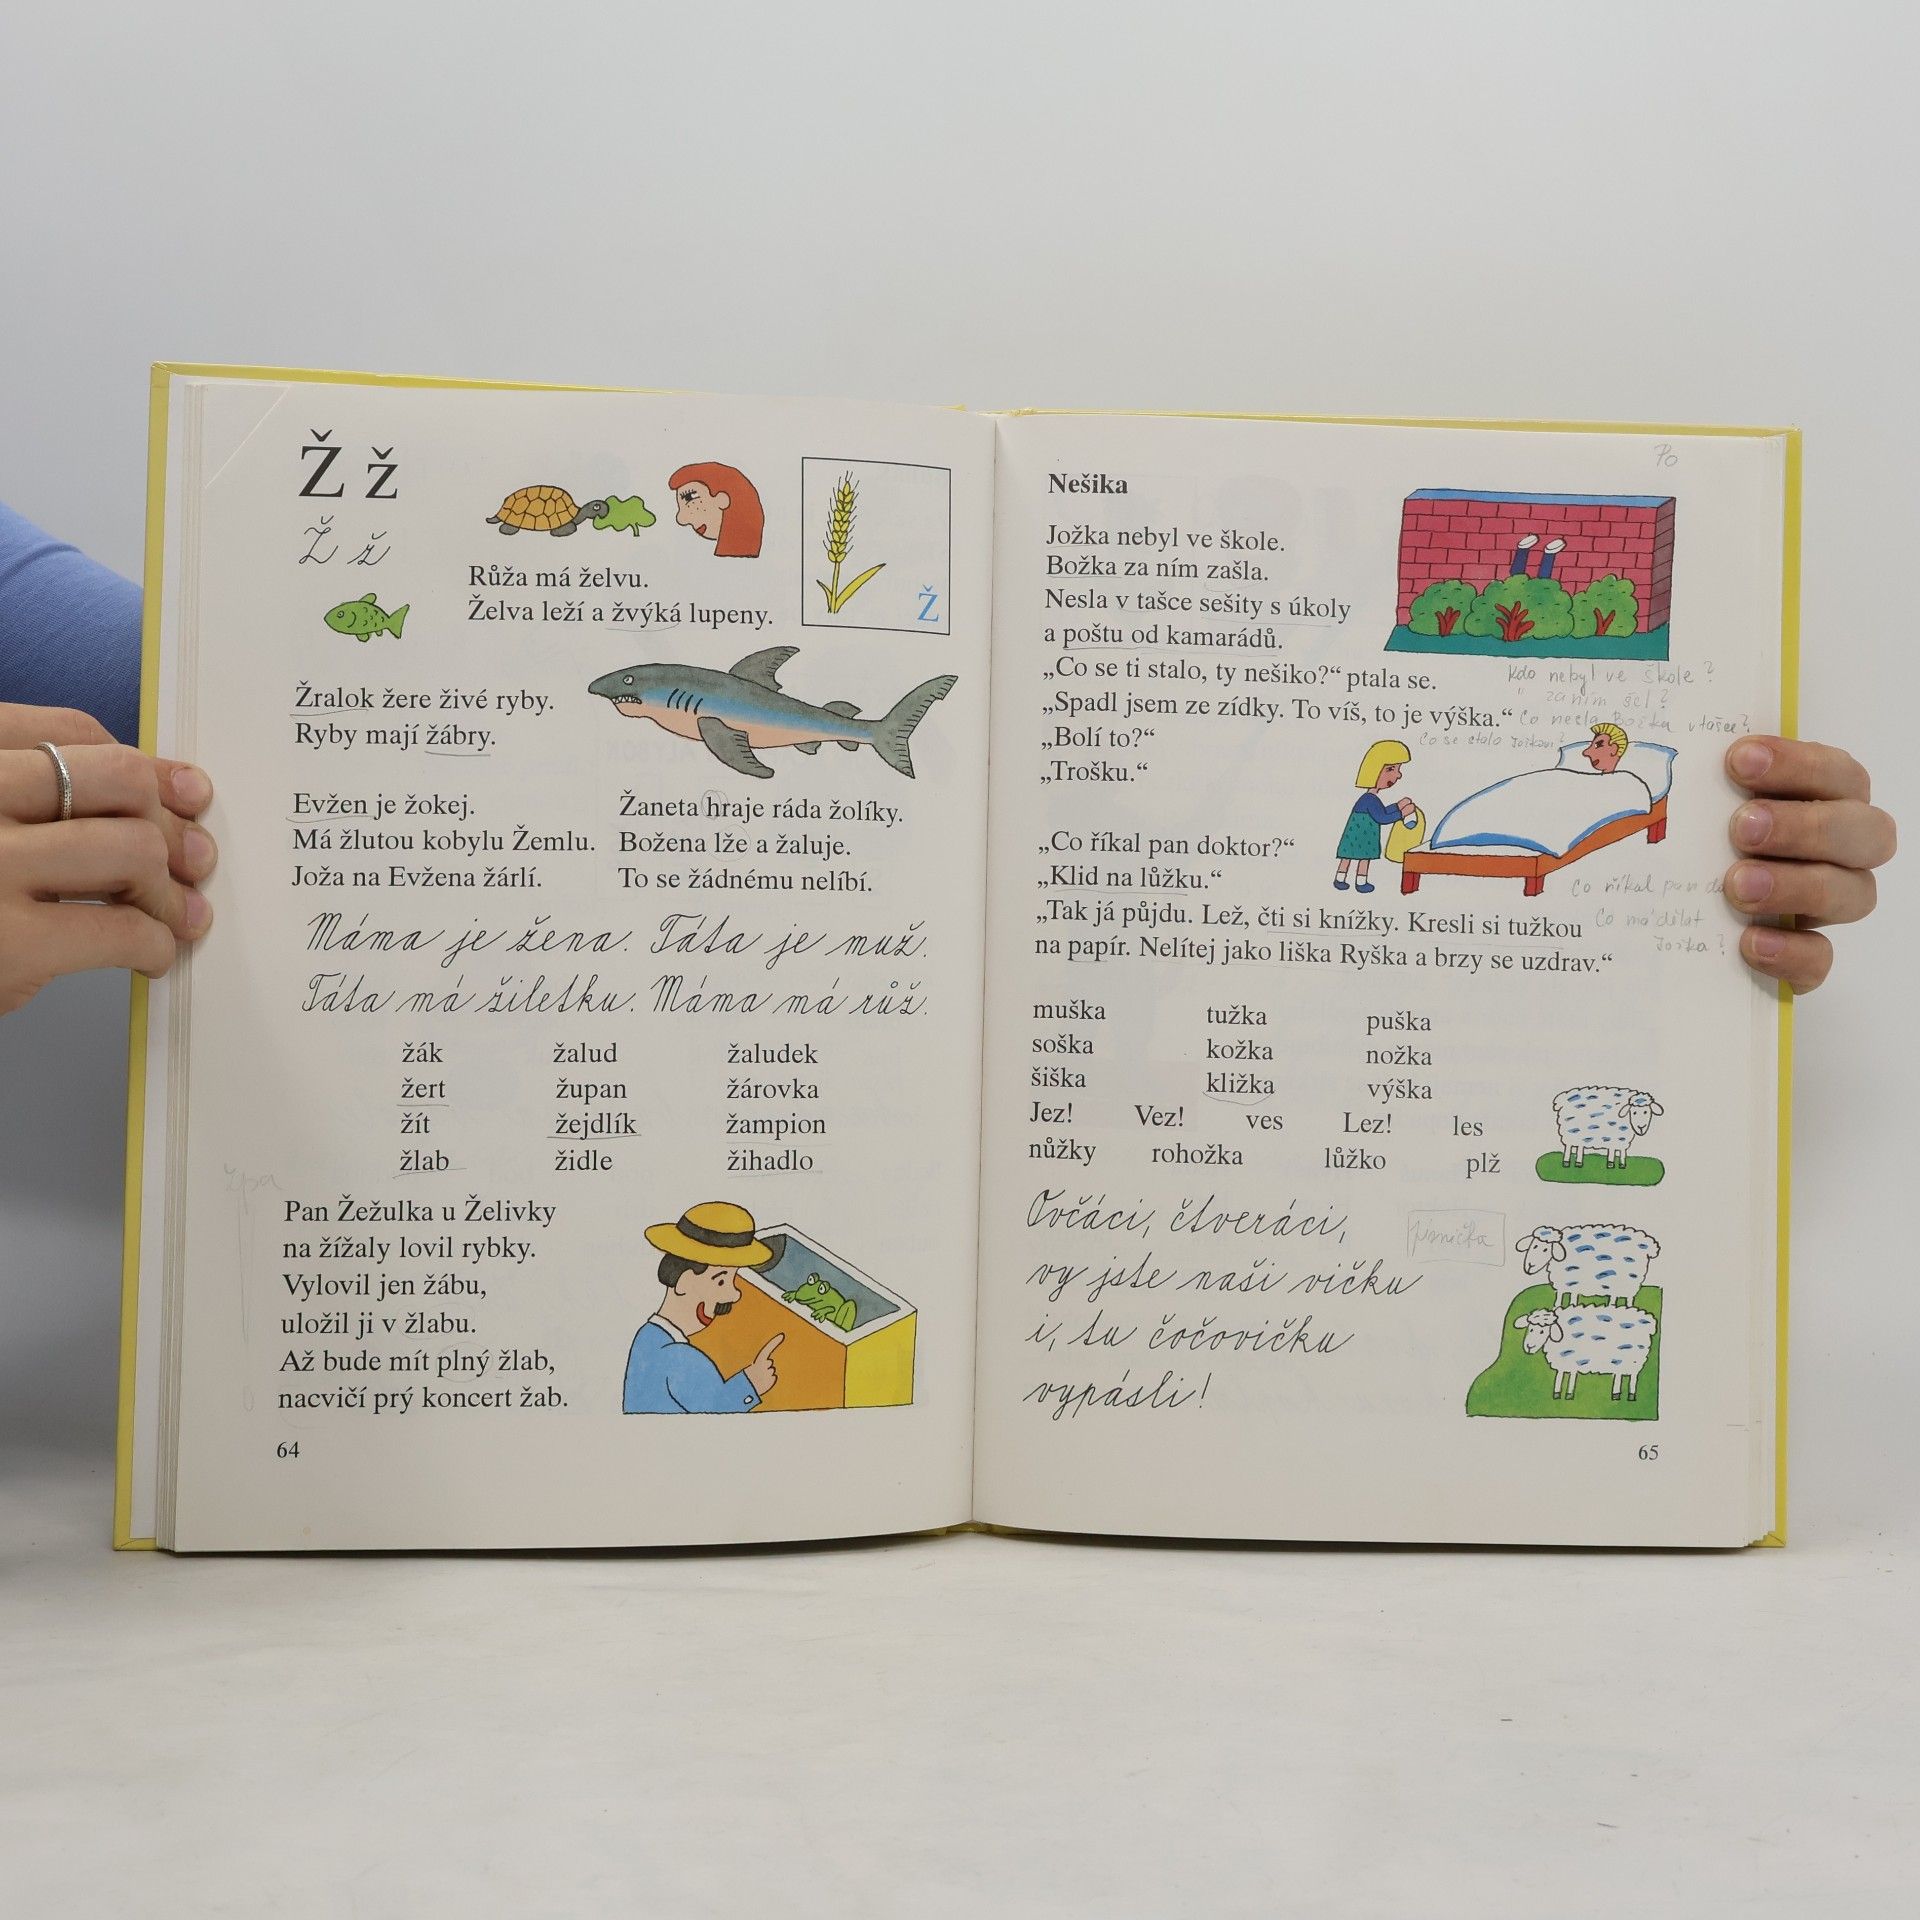 Ž ž
Ž ž
Růža má želvu.
Želva leží a žvýká lupeny.
Ž
Žralok žere živé ryby.
Ryby mají žábry.
Evžen je žokej.
Má žlutou kobylu Žemlu.
Joža na Evžena žárlí.
Žaneta hraje ráda žolíky.
Božena lže a žaluje.
To se žádnému nelíbí.
Máma je žena. Táta je muž.
Táta má žiletku. Máma má růž.
žák žalud žaludek
žert župan žárovka
žít žejdlík žampion
žlab židle žihadlo
žpa
Pan Žežulka u Želivky
na žížaly lovil rybky.
Vylovil jen žábu,
uložil ji v žlabu.
Až bude mít plný žlab,
nacvičí prý koncert žab.
64
Po
Nešika
Jožka nebyl ve škole.
Božka za ním zašla.
Nesla v tašce sešity s úkoly
a poštu od kamarádů.
„Co se ti stalo, ty nešiko?“ ptala se.
„Spadl jsem ze zídky. To víš, to je výška.“
„Bolí to?“
„Trošku.“
Kdo nebyl ve škole?
" za ním šel?
Co nesla Božka v tašce?
Co se stalo Jožkovi?
„Co říkal pan doktor?“
„Klid na lůžku.“
„Tak já půjdu. Lež, čti si knížky. Kresli si tužkou
na papír. Nelítej jako liška Ryška a brzy se uzdrav.“
Co říkal pan do
Co má dělat
Jožka?
muška tužka puška
soška kožka nožka
šiška kližka výška
Jez! Vez! ves Lez! les
nůžky rohožka lůžko plž
Ovčáci, čtveráci,
vy jste naši vičku
i, tu čočovičku
vypásli!
písnička
65